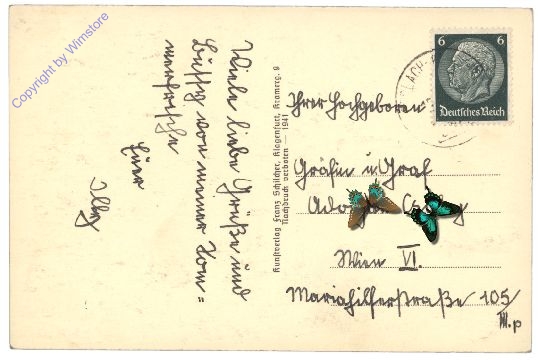 Copyright by Wimstore
Viele liebe Grüße und
Bussy von meiner Som=
merfrische
Euer
Illy
Kunstverlag Franz Schilcher, Klagenfurt, Kramerg. 9
Nachdruck verboten — 1941
6 6
Deutsches Reich
Ihrer Hochgeboren
Gräfin u Graf
Wien VI.
Mariahilferstraße 105/
III.P